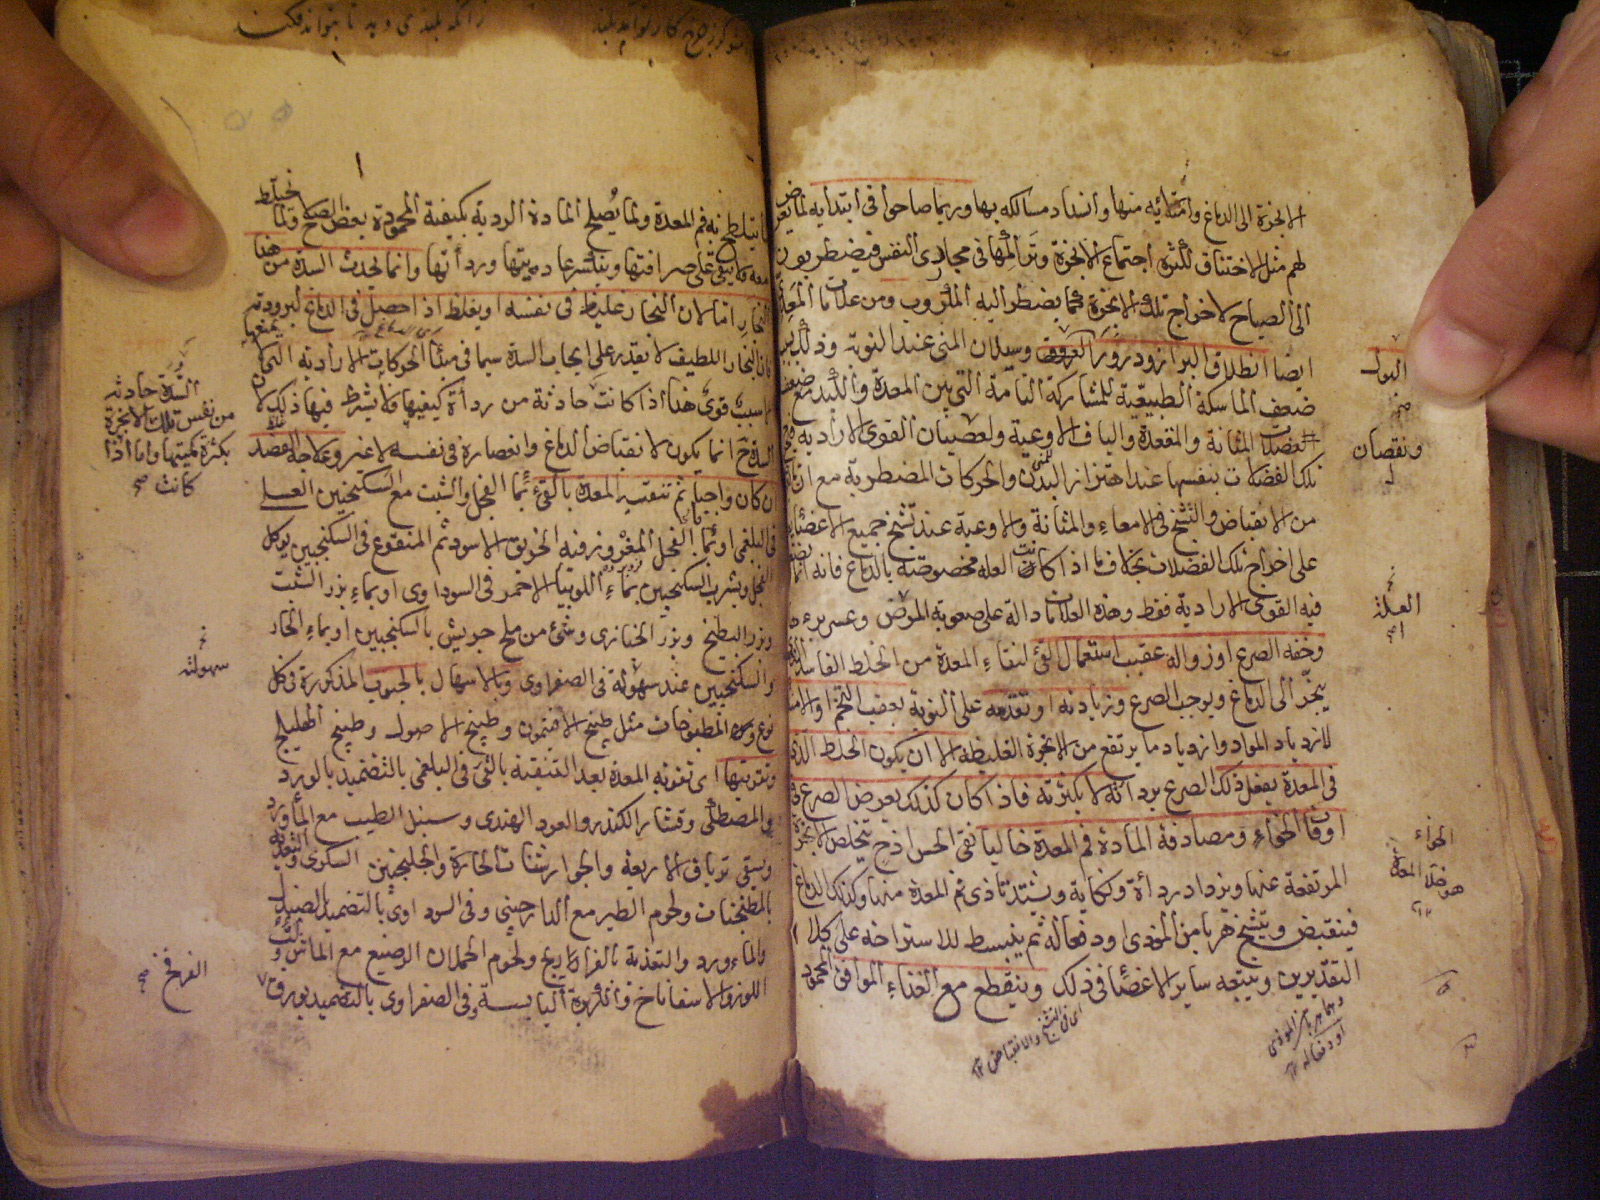 الابخرة الى الدماغ وامتلائه منها وانسداد مسالكه بها وربما صاحوا فى ابتدائه لما يعرض
لهم مثل الاختناق لكثرة اجتماع الابخرة وتراكمها فى مجارى النفس فيضطربون
الى الصياح لاخراج تلك الابخرة كما يضطر اليه المكروب ومن علامات المعدى
ايضا انطلاق البراز ودرور وسيلان المنى عند النوبة وذلك
ضعف الماسكة الطبيعية للمشاركة التامة التى بين المعدة والكبد
العضلات المثانة والمقعدة والياف الاوعية ولعصيان القوى الارادية
تلك الفضلات بنفسها عند اهتزاز البدن والحركات المضطربة مع ان
من الانقباض والتشنج فى الامعاء والمثانة والاوعية عند تشنج جميع الاعضاء
على اخراج تلك الفضلات بخلاف ما اذا كانت العلة مخصوصة بالدماغ فانه انما
فيه القوى الارادية فقط وهذه العلامات دالة على صعوبة المرض وعسر برءه
وخفة الصرع او زواله عقيب استعمال القئ لنقاء المعدة من الخلط الفاسد
الى الدماغ ويوجب الصرع وزيادته او تقدمه على النوبة بعقب التخم
لازدياد المواد وازدياد ما يرتفع من الابخرة الغليظة الا ان يكون الخلط الذى
فى المعدة يفعل ذلك الصرع برداءته لا بكثرته فاذا كان كذلك يعرض الصرع فى
اوقات الخواء ومصادفة المادة فم المعدة خاليا نقى الحس اذ ح تخلص الابخرة
المرتفعة عنها ويزداد رداءة ونكاية ويشتد تاذى فم المعدة منها وكذلك الدماغ
فينقبض ويتشنج هربا من المؤذى او دفعا له ثم ينبسط للاستراحة على كلا
التقديرين ويتبعه ساير الاعضا فى ذلك وينقطع مع الغذاء الموافق المحمود
البول
ونقصان
العلة
الخواء
هو خلاء المعدة
اى فى التشنج والانقباض
وهما هربا من الموذى
او دفعا له
فم المعدة ولما يصلح المادة الردية بكيفية المحمودة بعض الصلاح ولما يختلط
معه فلا يبقى على صرافتها وينكسر عاديتها ورداءتها وانما تحدث السدة من هذا
البخار اما لان البخار غليظ فى نفسه او يغلظ اذا حصل فى الدماغ لبرودته
فان البخار اللطيف لا يقدر على ايجاب السدة سيما فى مبدأ الحركات الارادية
سبب قوى هذا اذا كانت حادثة من رداءة كيفيتها فلا يشترط فيها ذلك لان
السدة ح انما يكون لانقباض الدماغ وانعصاره فى نفسه لا غير وعلاجه الفصد
ان كان واجبا ثم تنقية المعدة بالقئ بماء الفجل والشبت مع السكنجبين العسلى
فى البلغمى او بماء الفجل المغروز فيه الخربق الاسود ثم المنقوع فى السكنجبين يوكل
الفجل ويشرب السكنجبين بماء اللوبيا الاحمر فى السوداوى او بماء بزر الشبت
وبزر البطيخ وبزر الخبازى وشئ من ملح جريش بالسكنجبين او بماء الحار
والسكنجبين عند سهولة فى الصفراوى وبالاسهال بالحبوب المذكورة فى كل
نوع المطبوخات مثل طبيخ الافتيمون وطبيخ الاصول وطبيخ الهليلج
وتقويتها اى تقوية المعدة بعد التنقية بالقئ فى البلغمى بالتضميد بالورد
والمصطكى وقشار الكندر والعود الهندى وسنبل الطيب مع الماورد
ويسقى ترياق الاربعة والجوارشنات الحارة والجلنجبين السكرى والتغذية
بالمطنجنات ولحوم الطير مع الدارچينى وفى السوداوى بالتضميد
والماء ورد والتغذية بالفراريج ولحوم الحملان الرضيع مع الماش ولب
اللوز والاسفاناخ والكزبرة اليابسة وفى الصفراوى بالتضميد بورق
السدة حادثة
من نفس تلك الابخرة
بكثرة كميتها واما اذا
كانت صح
سهولته
الفرخ